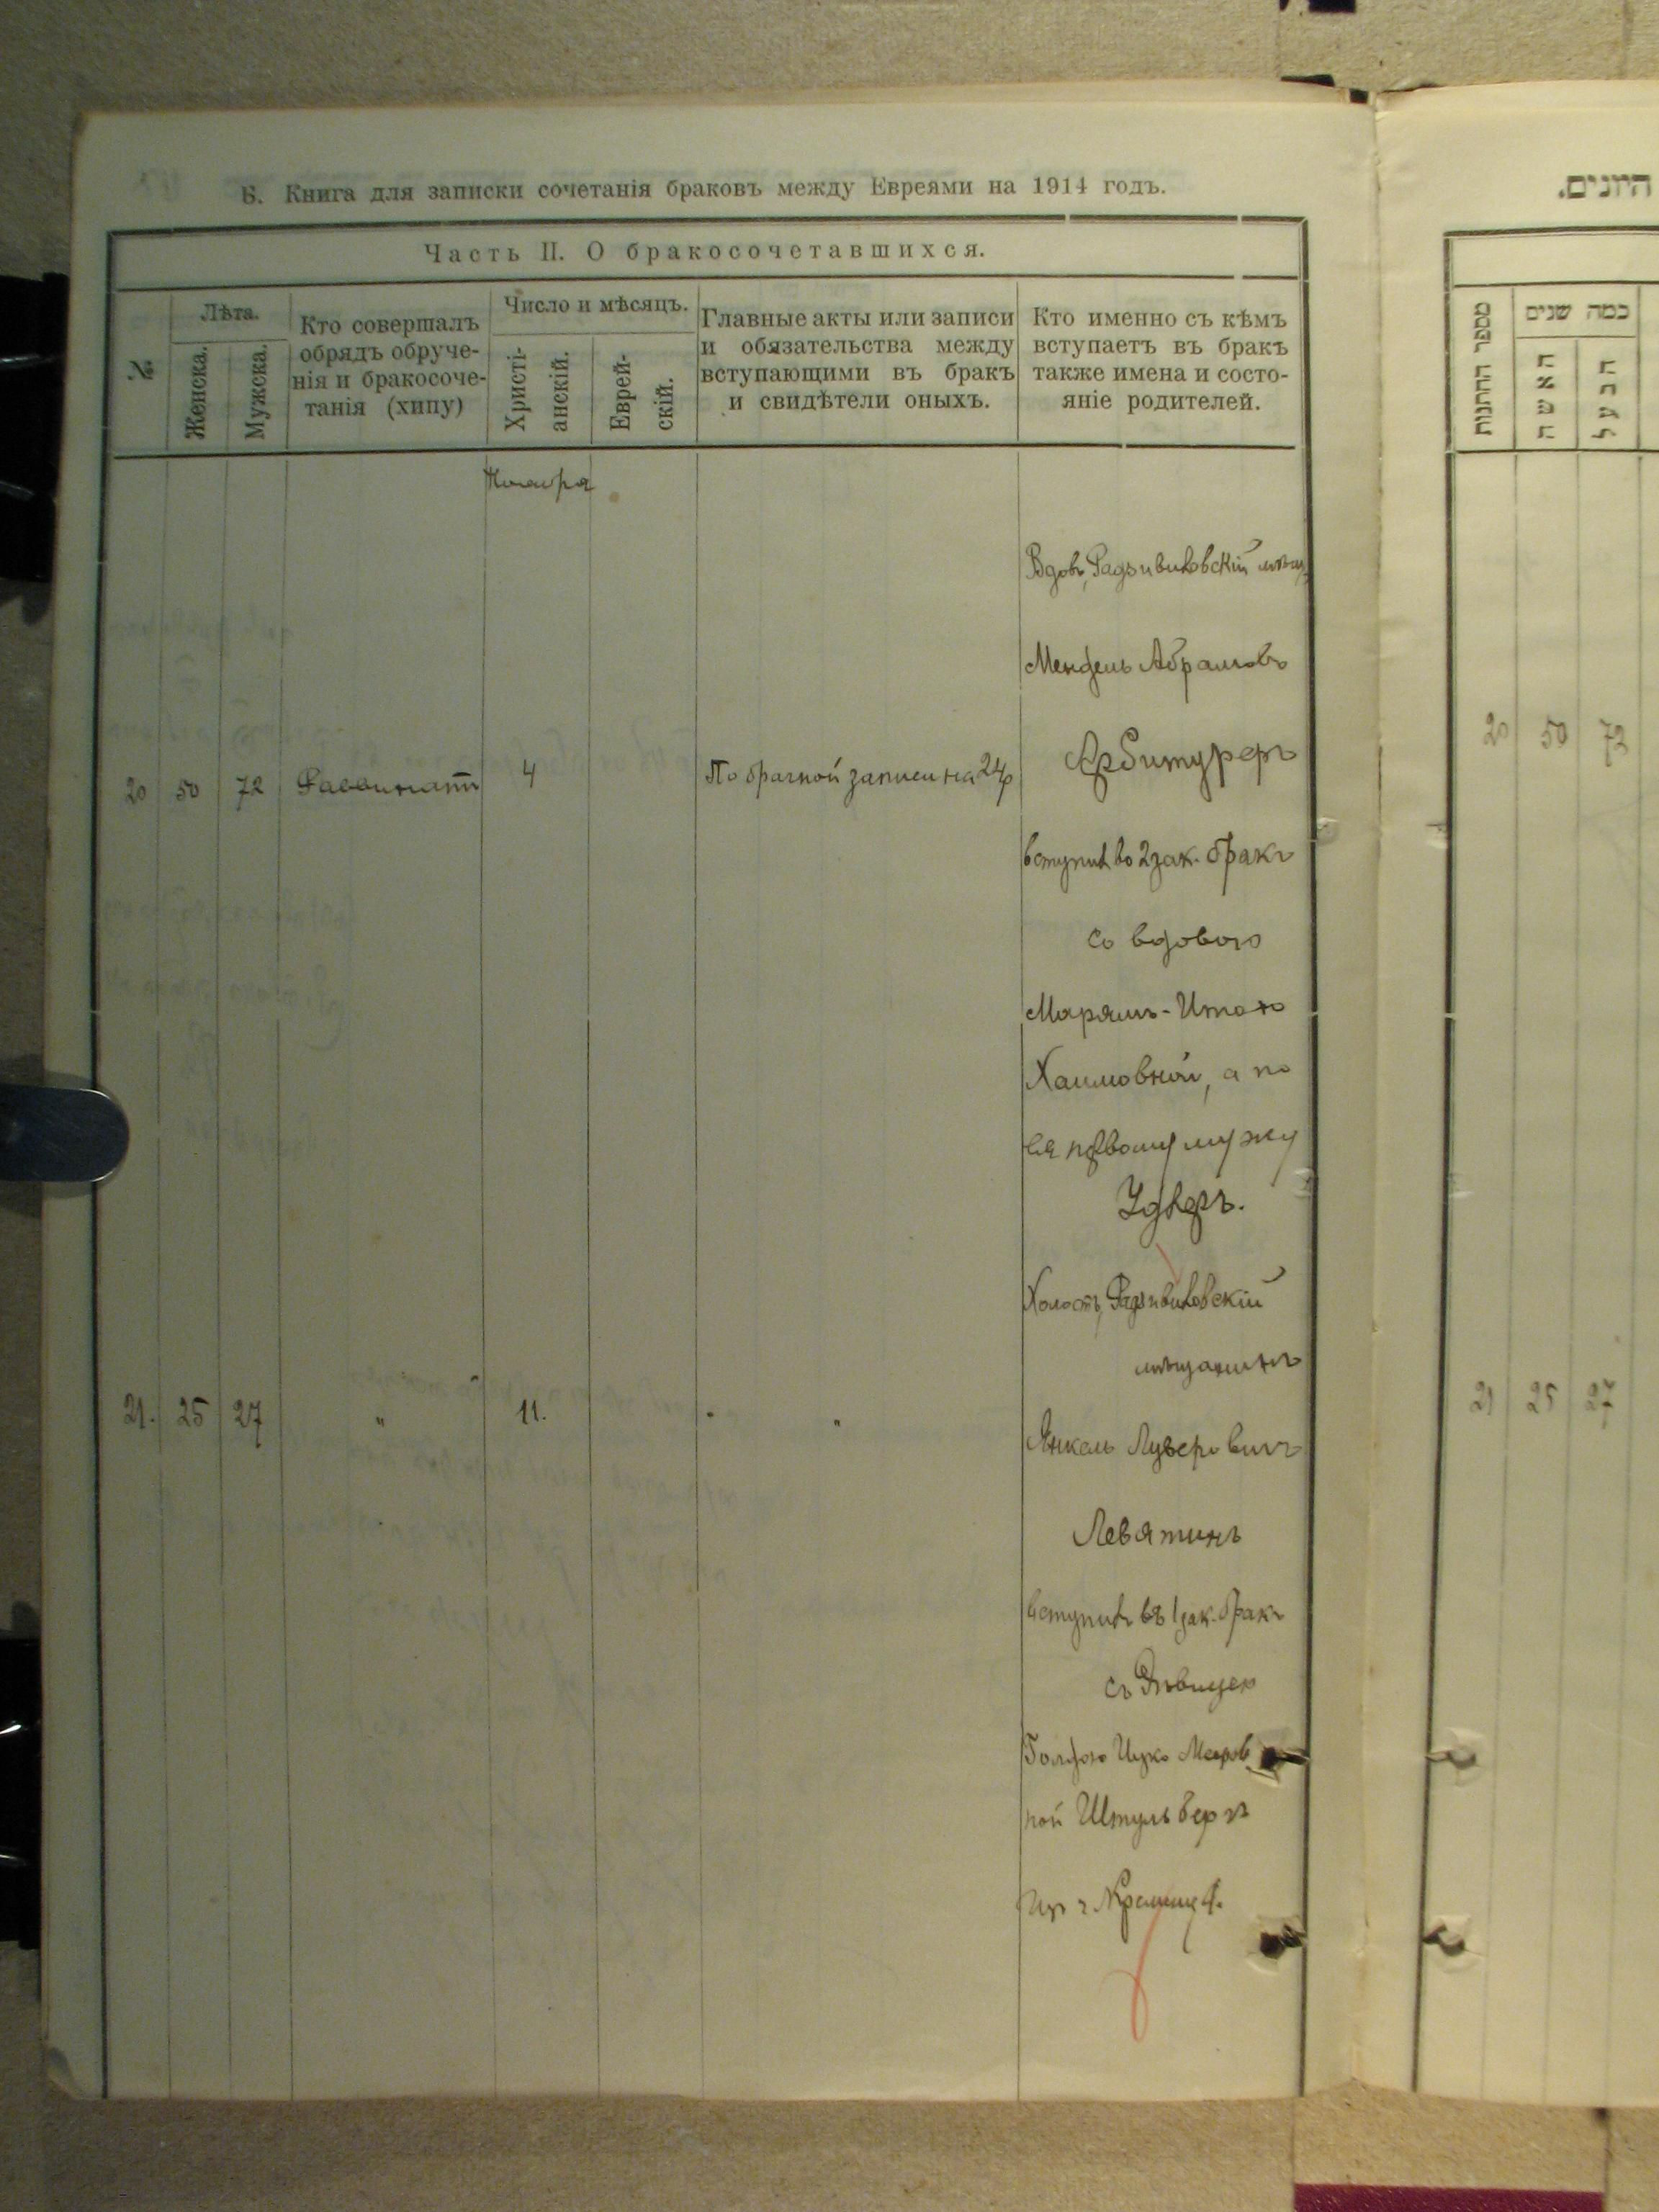 Б. Книга для записки сочетанія браковъ между Евреями на 1914 годъ.
Часть II. О бракосочетавшихся.
№
Лѣта.
Женска.
Мужска.
Кто совершалъ
обрядъ обруче-
нія и бракосоче-
танія (хипу)
Число и мѣсяцъ.
Христі-
анскій.
Еврей-
скій.
Главные акты или записи
и обязательства между
вступающими въ бракъ
и свидѣтели оныхъ.
Кто именно съ кѣмъ
вступаетъ въ бракъ
также имена и состо-
яніе родителей.
20 50 72 Раввинатъ 4 По брачной записи на 24р
Вдов., Радзивиловскій мѣщ.
Мендель Абрамовъ
Арбитуреръ
вступил во 2 зак. бракъ
со вдовою
Марямъ-Итою
Хаимовной, а по
ея первому мужу
Холостъ, Радзивиловскій
мѣщанинъ
21. 25 27 " 11. " "
Янкель Лузеровичъ
Левятинъ
вступилъ въ 1 зак. бракъ
съ дѣвицею
Мееров
ной Штульбергъ
изъ г.
היונים.
מספר החתנות
כמה שנים
האשה
הבעל
20 50 72
21 25 27